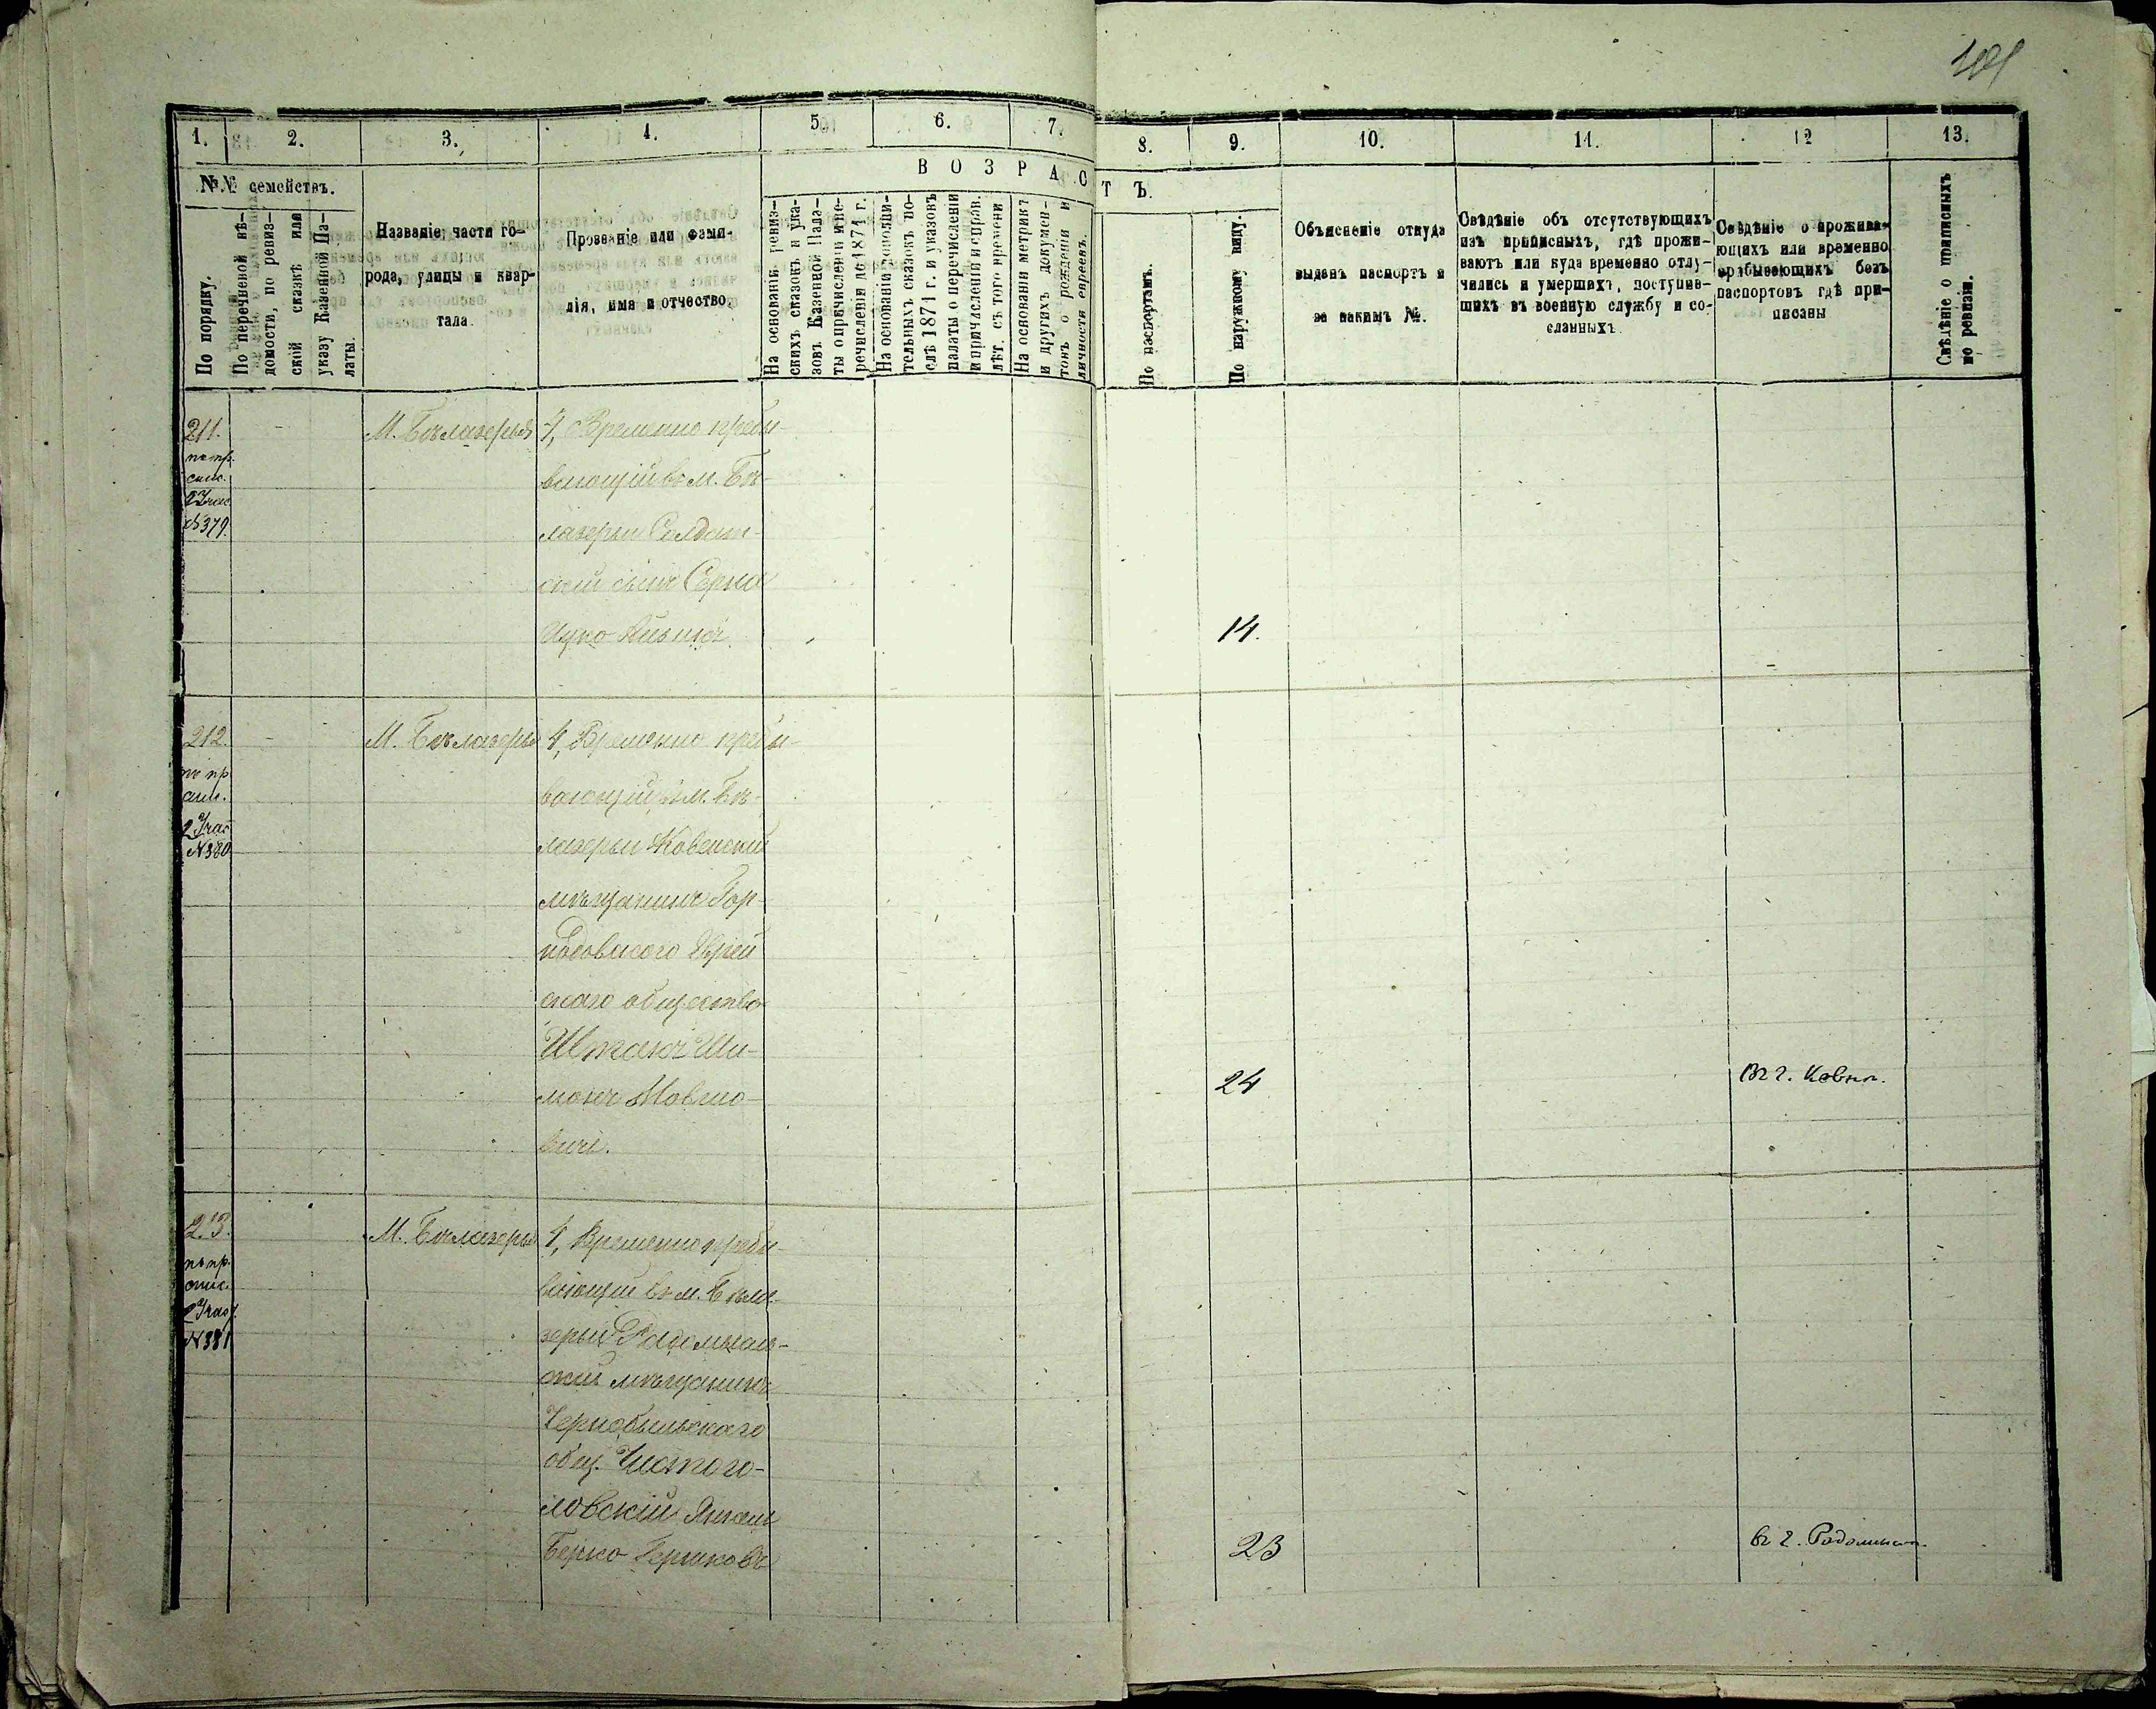 1. 2. 3. 4. 5. 6. 7. 8. 9. 10. 11. 12 13.
№№ семействъ.
ВОЗРАСТЪ.
По порядку.
По перечневой вѣ-
домости, по ревиз-
ской сказкѣ или
указу Казенной Па-
латы.
Названіе части го-
рода, улицы и квар-
тала
Прозваніе или фами-
лія, имя и отчество.
На основаніи ревиз-
скихъ сказокъ и ука-
зовъ Казенной Пала-
ты о причисленіи и пе-
речисленіи до 1874 г.
На основаніи дополни-
тельныхъ сказокъ по-
слѣ 1874 г. и указовъ
палаты о перечисленіи
и причисленіи и справ.
лѣт. съ того времени
На основаніи метрикъ
и другихъ докумен-
товъ о рожденіи и
личности евреевъ.
По паспортамъ.
По наружному виду.
Объясненіе откуда
выданъ паспортъ и
за какимъ №.
Свѣдѣніе объ отсутствующихъ
изъ приписныхъ, гдѣ прожи-
ваютъ или куда временно отлу-
чились и умершихъ, поступив-
шихъ въ военную службу и со-
сланныхъ
Свѣдѣніе о прожива-
ющихъ или временно
прабывающихъ безъ
паспортовъ гдѣ при-
писаны
Свѣдѣніе о приписныхъ
по ревизіи.
211.
по пр.
спис.
2 Учас
№ 379.
М. Бѣлазерья
4, Временно пребы-
вающій въ м. Бѣ-
лазерьи Солдат-
скій сынъ
Ицко
14.
212.
по пр.
спис.
2 Учас
№ 380
М. Бѣлазерья
4, Временно пребы-
вающій въ м. Бѣ-
лазерьи Ковенскій
мѣщанинъ
Еврей
скаго общества
Ши-
монъ Мовшо-
вичъ.
24
Въ г. Ковнѣ.
213.
по пр.
спис.
2 Учас
№ 381
М. Бѣлазерья
4, Временно пребы-
вающій въ м. Бѣла-
зерьи Радомысль-
скій мѣщанинъ
Чернобыльскаго
общ. Чистого-
ловскій
Берко Гершковъ
23
въ г. Радомыслѣ.